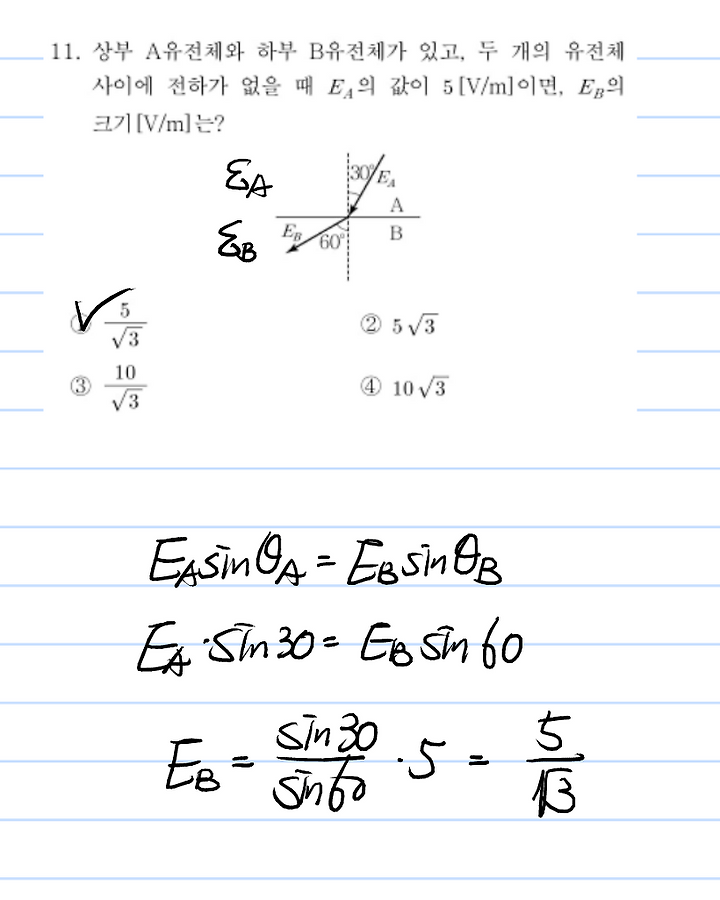 11. 상부 A유전체와 하부 B유전체가 있고, 두 개의 유전체
사이에 전하가 없을 때 E_A의 값이 5[V/m]이면, E_B의
크기[V/m]는?
ε_A
30° E_A
A
ε_B
E_B 60° B
5/√3
② 5√3
③ 10/√3
④ 10√3
E_A sinθ_A = E_B sinθ_B
E_A · sin30 = E_B sin60
E_B = sin30/sin60 · 5 = 5/√3